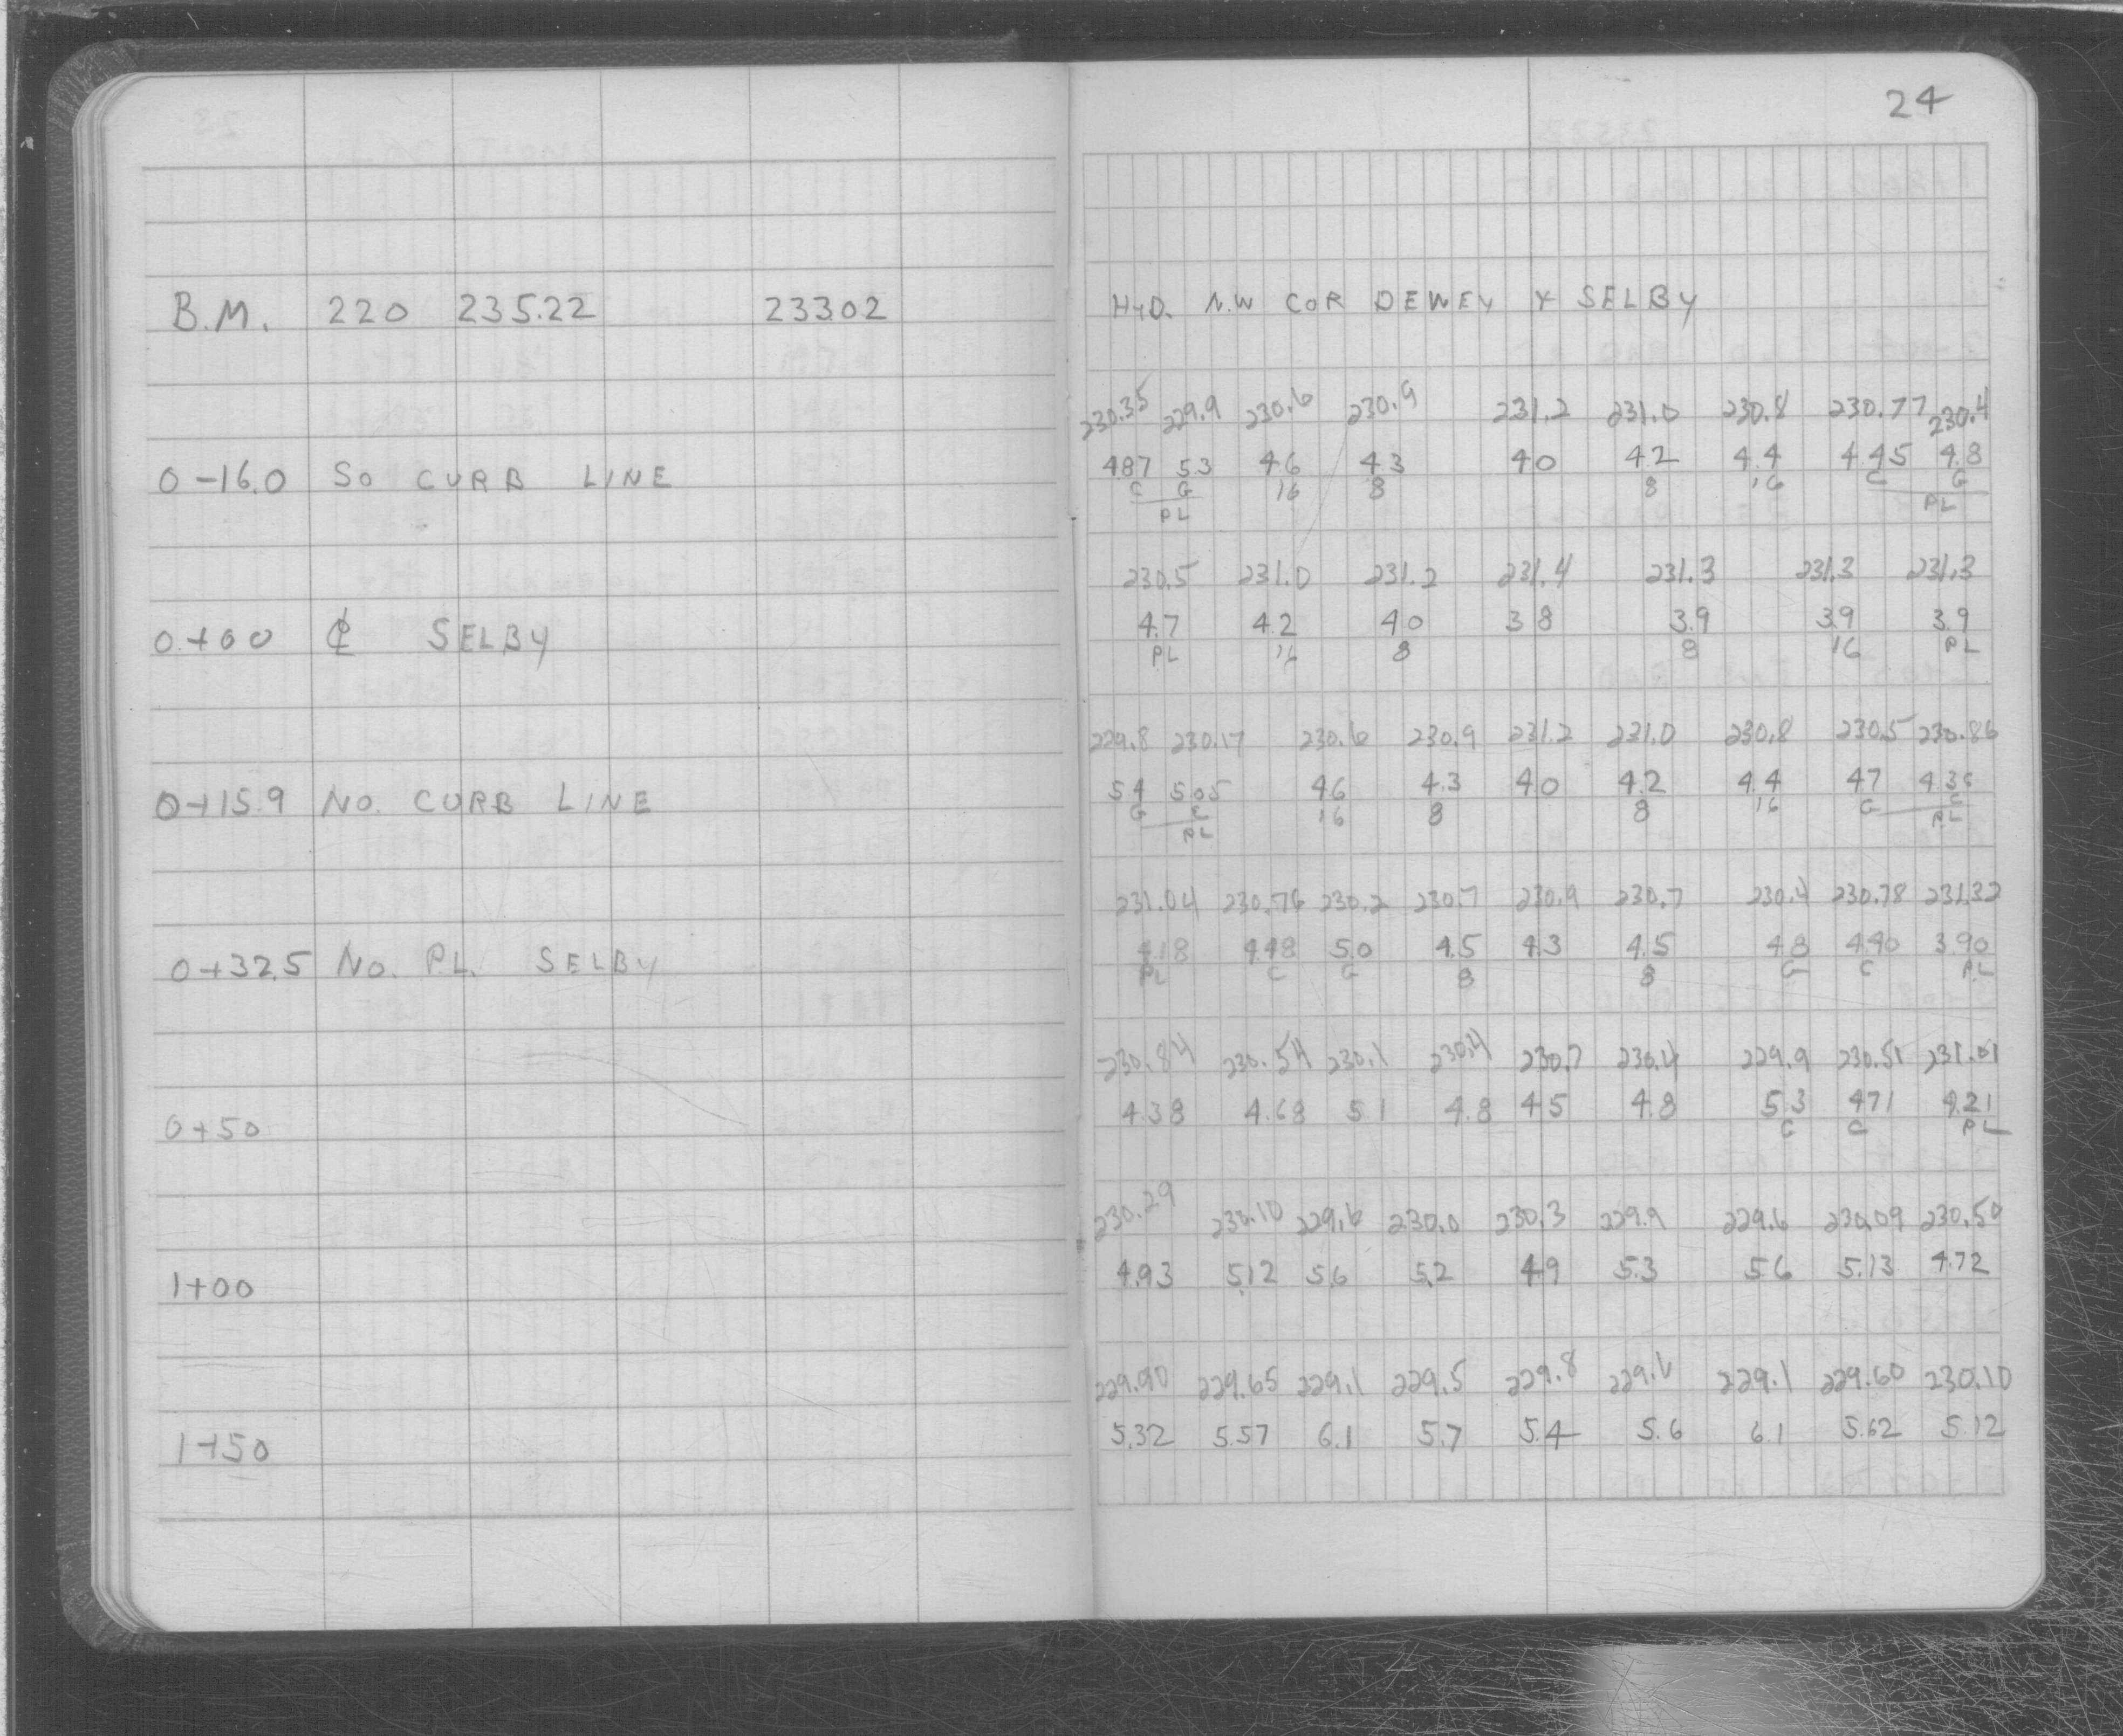 24
B.M. 220 235.22 233.02 HYD. N.W COR DEWEY & SELBY
230.35 229.9 230.6 230.9 231.2 231.0 230.8 230.77 230.4
0-16.0 SO CURB LINE 4.87 5.3 4.6 4.3 4.0 4.2 4.4 4.45 4.8
C G 16 8 8 16 C G
PL PL
230.5 231.0 231.2 231.4 231.3 231.3 231.3
0+00 ℄ SELBY 4.7 4.2 4.0 3.8 3.9 3.9 3.9
PL 16 8 8 16 PL
229.8 230.17 230.6 230.9 231.2 231.0 230.8 230.5 230.86
0+15.9 NO. CURB LINE 5.4 5.05 4.6 4.3 4.0 4.2 4.4 4.7 4.36
G C 16 8 8 16 G C
PL PL
231.04 230.74 230.2 230.7 230.9 230.7 230.4 230.78 231.32
0+32.5 NO. PL. SELBY 4.18 4.48 5.0 4.5 4.3 4.5 4.8 4.40 3.90
PL C G 8 8 G C PL
230.84 230.54 230.1 230.4 230.7 230.4 229.9 230.51 231.01
0+50 4.38 4.68 5.1 4.8 4.5 4.8 5.3 4.71 4.21
G C PL
230.29 230.10 229.6 230.0 230.3 229.9 229.6 230.09 230.50
1+00 4.93 5.12 5.6 5.2 4.9 5.3 5.6 5.13 4.72
229.90 229.65 229.1 229.5 229.8 229.6 229.1 229.60 230.10
1+50 5.32 5.57 6.1 5.7 5.4 5.6 6.1 5.62 5.12